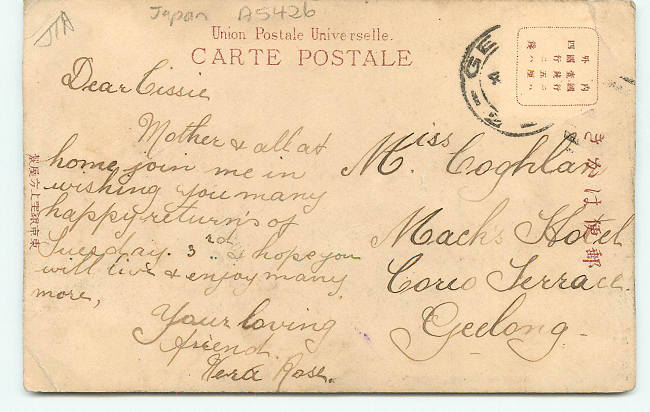 JTA
Japan A5426
Union Postale Universelle.
CARTE POSTALE
Dear Cissie
Mother & all at
home join me in
wishing you many
happy return's of
Tuesday. 3rd & hope you
will live & enjoy many
more,
Your loving
friend
Vera Rose.
Miss Coghlan
Mack's Hotel
Corio Terrace
Geelong
GE
きかは便郵